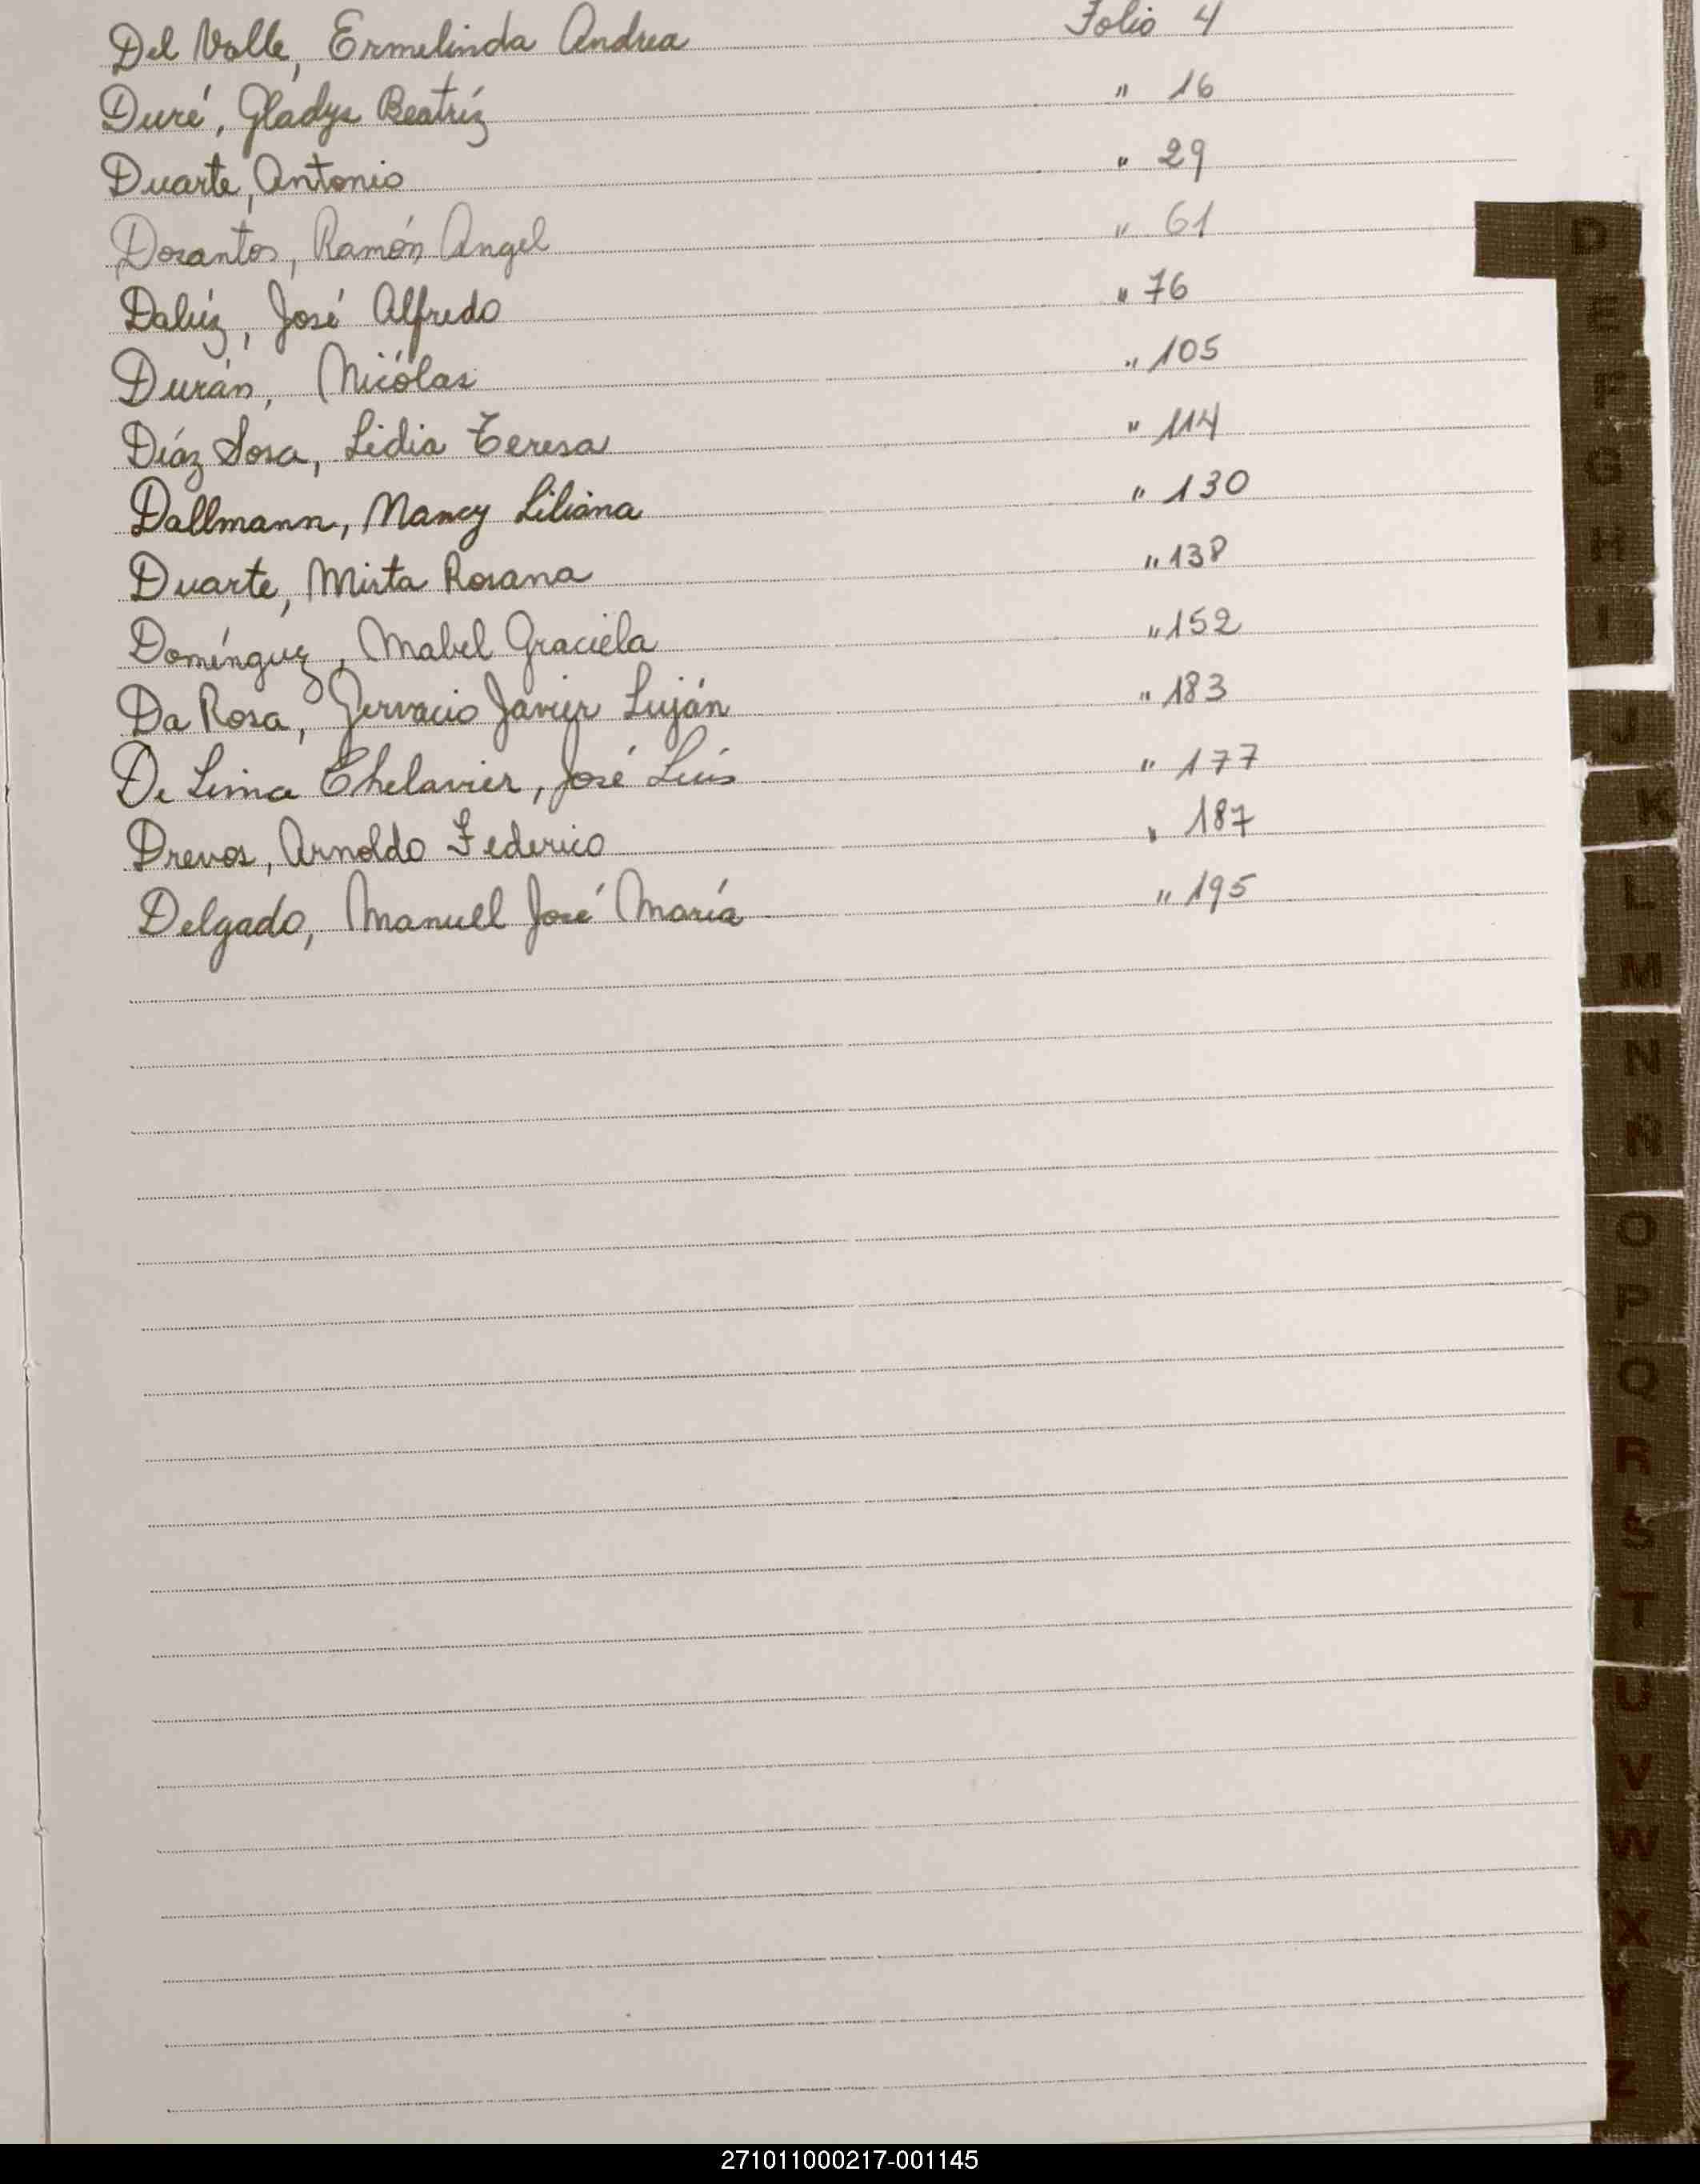 Del Valle, Ermelinda Andrea Folio 4
Duré, Gladys Beatríz " 16
Duarte, Antonio " 29
Dorantos, Ramón Angel " 61
Dalúz, José Alfredo " 76
Durán, Nicólas " 105
Díaz Sosa, Lidia Teresa " 114
Dallmann, Nancy Liliana " 130
Duarte, Mirta Rosana " 138
Domínguez, Mabel Graciela " 152
Da Rosa, Gervacio Javier Luján " 183
De Lima Chelavier, José Luís " 177
Drevos, Arnoldo Federico " 187
Delgado, Manuel José María " 195
D
E
F
G
H
I
J
K
L
M
N
Ñ
O
P
Q
R
S
T
U
V
W
X
Y
Z
271011000217-001145